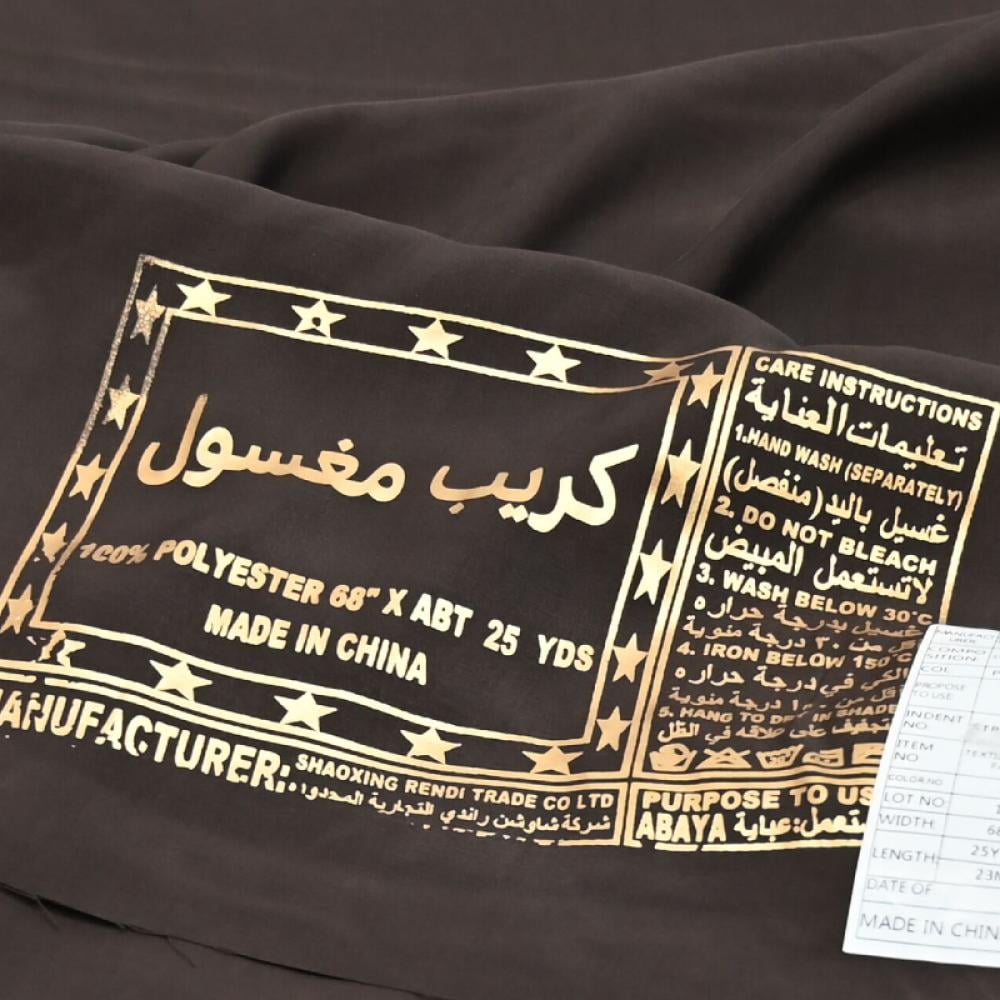 كريب مغسول
100% POLYESTER 68" X ABT 25 YDS
MADE IN CHINA
MANUFACTURER:
SHAOXING RENDI TRADE CO LTD
شركة شاوشن راندي التجارية المحدودة
CARE INSTRUCTIONS
تعليمات العناية
1.HAND WASH (SEPARATELY)
غسيل باليد (منفصل)
2. DO NOT BLEACH
لاتستعمل المبيض
3. WASH BELOW 30°C
غسيل بدرجة حراره
من ٣٠ درجة منوية
4. IRON BELOW 150°C
الكي في درجة حراره
درجة منوية
5. HANG TO DRY IN SHADE
على علاقه في الظل
PURPOSE TO US
ABAYA عباية:
COL
PROPOSE
TO USE
INDENT
NO
ITEM
NO
COLOR NO
LOT NO
WIDTH:
LENGTH: 25Y
23M
DATE OF
MADE IN CHIN